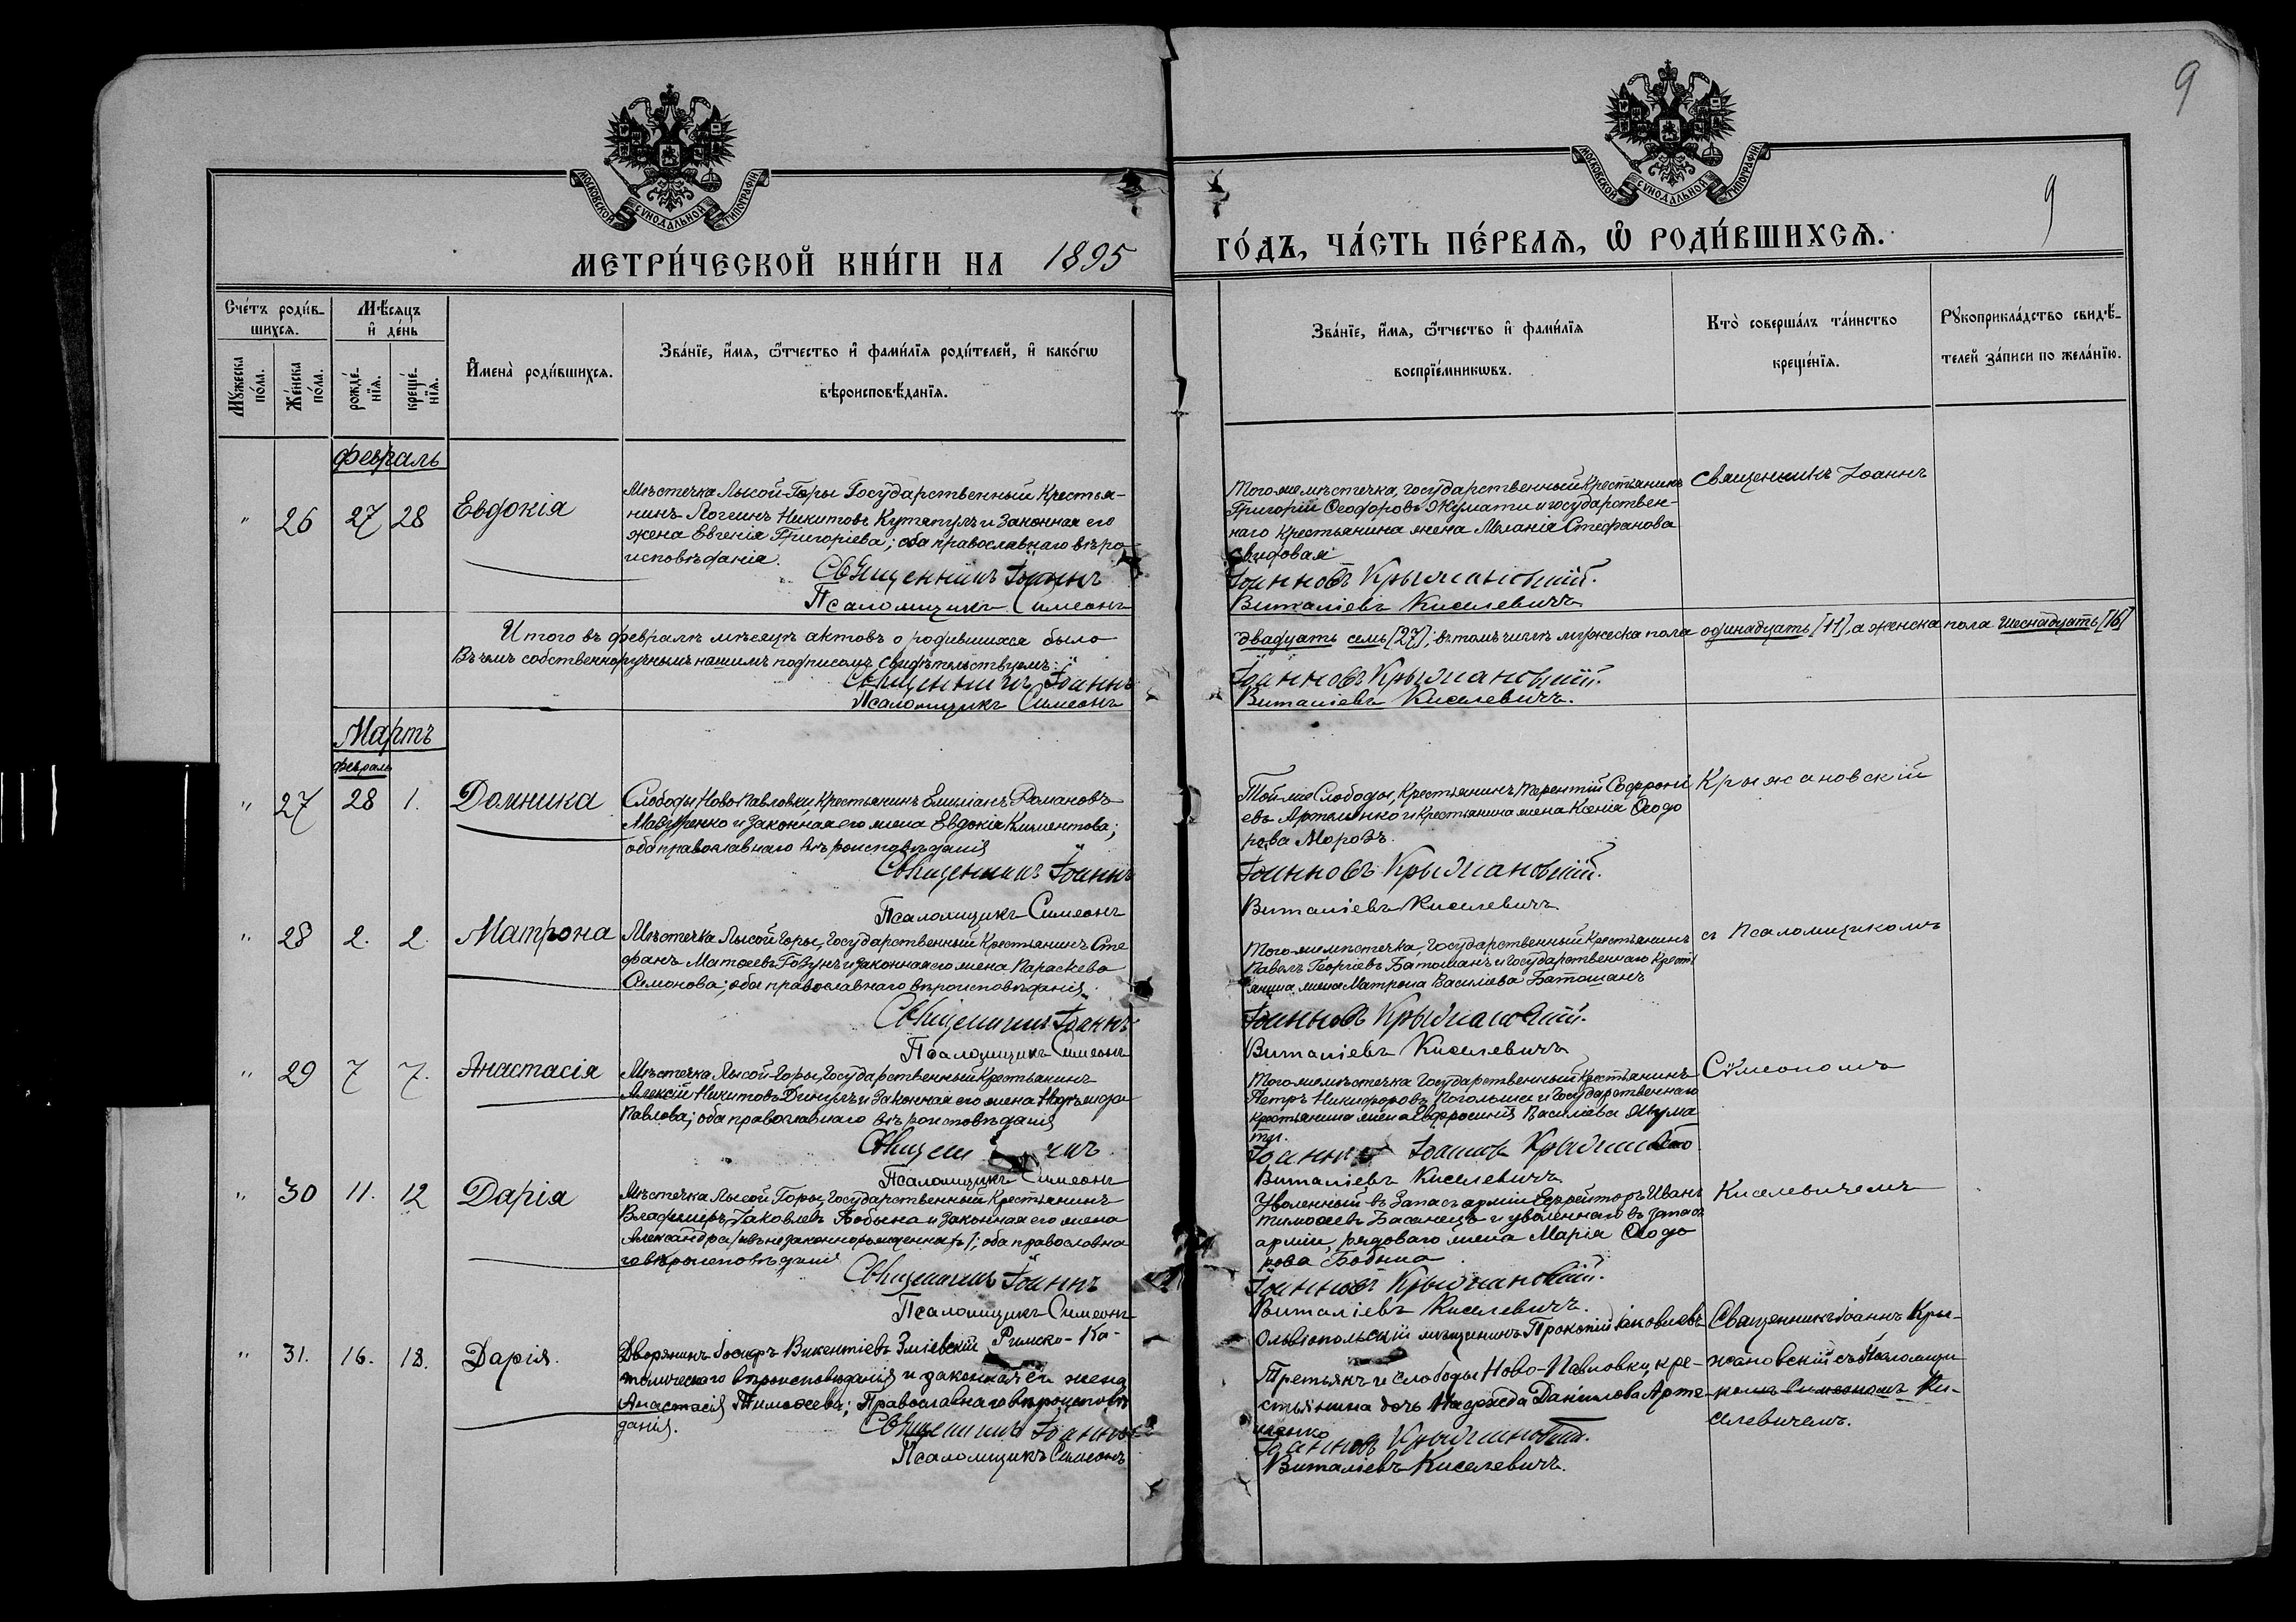 9
МОСКОВСКОЙ СѴНОДАЛЬНОЙ ТИПОГРАФІИ
МОСКОВСКОЙ СѴНОДАЛЬНОЙ ТИПОГРАФІИ
9
МЕТРИ́ЧЕСКОЙ КНИ́ГИ НА 1895
ГО́ДЪ, ЧА́СТЬ ПЕ́РВАѦ, Ѡ҆ РОДИ́ВШИХСѦ.
Сче́тъ роди́в-
шихсѧ.
Мѣ́сѧцъ
и҆ де́нь
Мꙋ́жеска
по́ла.
Же́нска
по́ла.
рожде́-
нїѧ.
креще́-
нїѧ.
И҆мена̀ роди́вшихсѧ.
Зва́нїе, и҆́мѧ, ѻ҆́тчество и҆ фами́лїѧ роди́телей, и҆ како́гѡ
вѣроисповѣ́данїѧ.
Зва́нїе, и҆́мѧ, ѻ҆́тчество и҆ фами́лїѧ
воспрїе́мникѡвъ.
Кто̀ соверша́лъ та́инство
креще́нїѧ.
Рꙋкоприкла́дство свидѣ́-
телей за́писи по жела́нїю.
Февраль
" 26 27 28 Евдокія
Мѣстечка Лысой-Горы Государственный Крестья-
нинъ Логгинъ Никитовъ и Законная его
жена Евгенія Григоріева; оба православнаго вѣро
исповѣданія.
Священникъ Іоаннъ
Псаломщикъ Симеонъ
Того же мѣстечка, государственный Крестьянинъ
Григорій Ѳеодоровъ Жумати и государствен-
наго Крестьянина жена Меланія Стефанова
Свидовая
Іоанновъ Крыжановскій.
Виталіевъ Киселевичъ
Священникъ Іоаннъ
Итого въ февралѣ мѣсяцѣ актовъ о родившихся было
двадцать семь [27]; въ томъ числѣ мужеска пола одинадцать [11], а женска пола шеснадцать [16]
Въ чемъ собственноручнымъ нашимъ подписомъ свидѣтельствуемъ:
Священникъ Іоаннъ
Іоанновъ Крыжановскій.
Псаломщикъ Симеонъ
Виталіевъ Киселевичъ.
Мартъ
февраль
" 27 28 1. Домника
Слободы Ново Павловки Крестьянинъ Емиліанъ Романовъ
Мавренко и Законная его жена Евдокія Климентова;
оба православнаго вѣроисповѣданія
Священникъ Іоаннъ
Псаломщикъ Симеонъ
Той же Слободы, Крестьянинъ Терентій Софроні
евъ Артеменко и Крестьянина жена Ксенія Ѳеодо
рова Морозъ.
Іоанновъ Крыжановскій.
Виталіевъ Киселевичъ
Крыжановскій
" 28 2. 2. Матрона
Мѣстечка Лысой Горы, Государственный Крестьянинъ Сте
фанъ Матѳеевъ Говунъ и законная его жена Параскева
Симонова; оба православнаго вѣроисповѣданія.
Священникъ Іоаннъ
Псаломщикъ Симеонъ
Того же мѣстечка, Государственный Крестьянинъ
Павелъ Георгіевъ Батошанъ и Государственнаго Кресть
янина жена Матрона Василіева Батошанъ
Іоанновъ Крыжановскій.
Виталіевъ Киселевичъ
съ Псаломщикомъ
" 29 7 7. Анастасія
Мѣстечка Лысой-Горы, Государственный Крестьянинъ
Алексій Никитовъ и Законная его жена Надежда
Павлова; оба православнаго вѣроисповѣданія
Псаломщикъ Симеонъ
Того же мѣстечка Государственный Крестьянинъ
Петръ Никифоровъ и Государственнаго
крестьянина жена Евфросинія Василіева Жума
ти.
Іоанновъ
Виталіевъ Киселевичъ
Сѵмеономъ
" 30 11. 12 Дарія
Мѣстечка Лысой Горы, Государственный Крестьянинъ
Владиміръ Іаковлевъ Бобына и Законная его жена
Александра /изъ незаконнорожденныхъ/; оба православна
го вѣроисповѣданія
Священникъ Іоаннъ
Псаломщикъ Симеонъ
Уволенный въ Запасъ арміи Ефрейторъ Иванъ
Тимоѳеевъ Басанецъ и уволеннаго въ запасъ
арміи, рядоваго жена Марія Ѳеодо
рова Бобына
Іоанновъ Крыжановскій.
Виталіевъ Киселевичъ.
Киселевичемъ
" 31. 16. 18. Дарія.
Дворянинъ Іосифъ Викентіевъ Зміевскій Римско-Ка-
толическаго вѣроисповѣданія и законная его жена
Анастасія Тимоѳеева; Православнаго вѣроисповѣ
данія.
Священникъ Іоаннъ
Псаломщикъ Симеонъ
Ольвіопольскій мѣщанинъ Прокопій Іаковлевъ
Третьякъ и Слободы Ново-Павловки, кре-
стьянина дочь Надежда Даніилова Арте-
менко
Іоанновъ Крыжановскій.
Виталіевъ Киселевичъ.
Священникъ Іоаннъ Кры-
жановскій съ Псаломщи
комъ Симеономъ Ки-
селевичемъ.